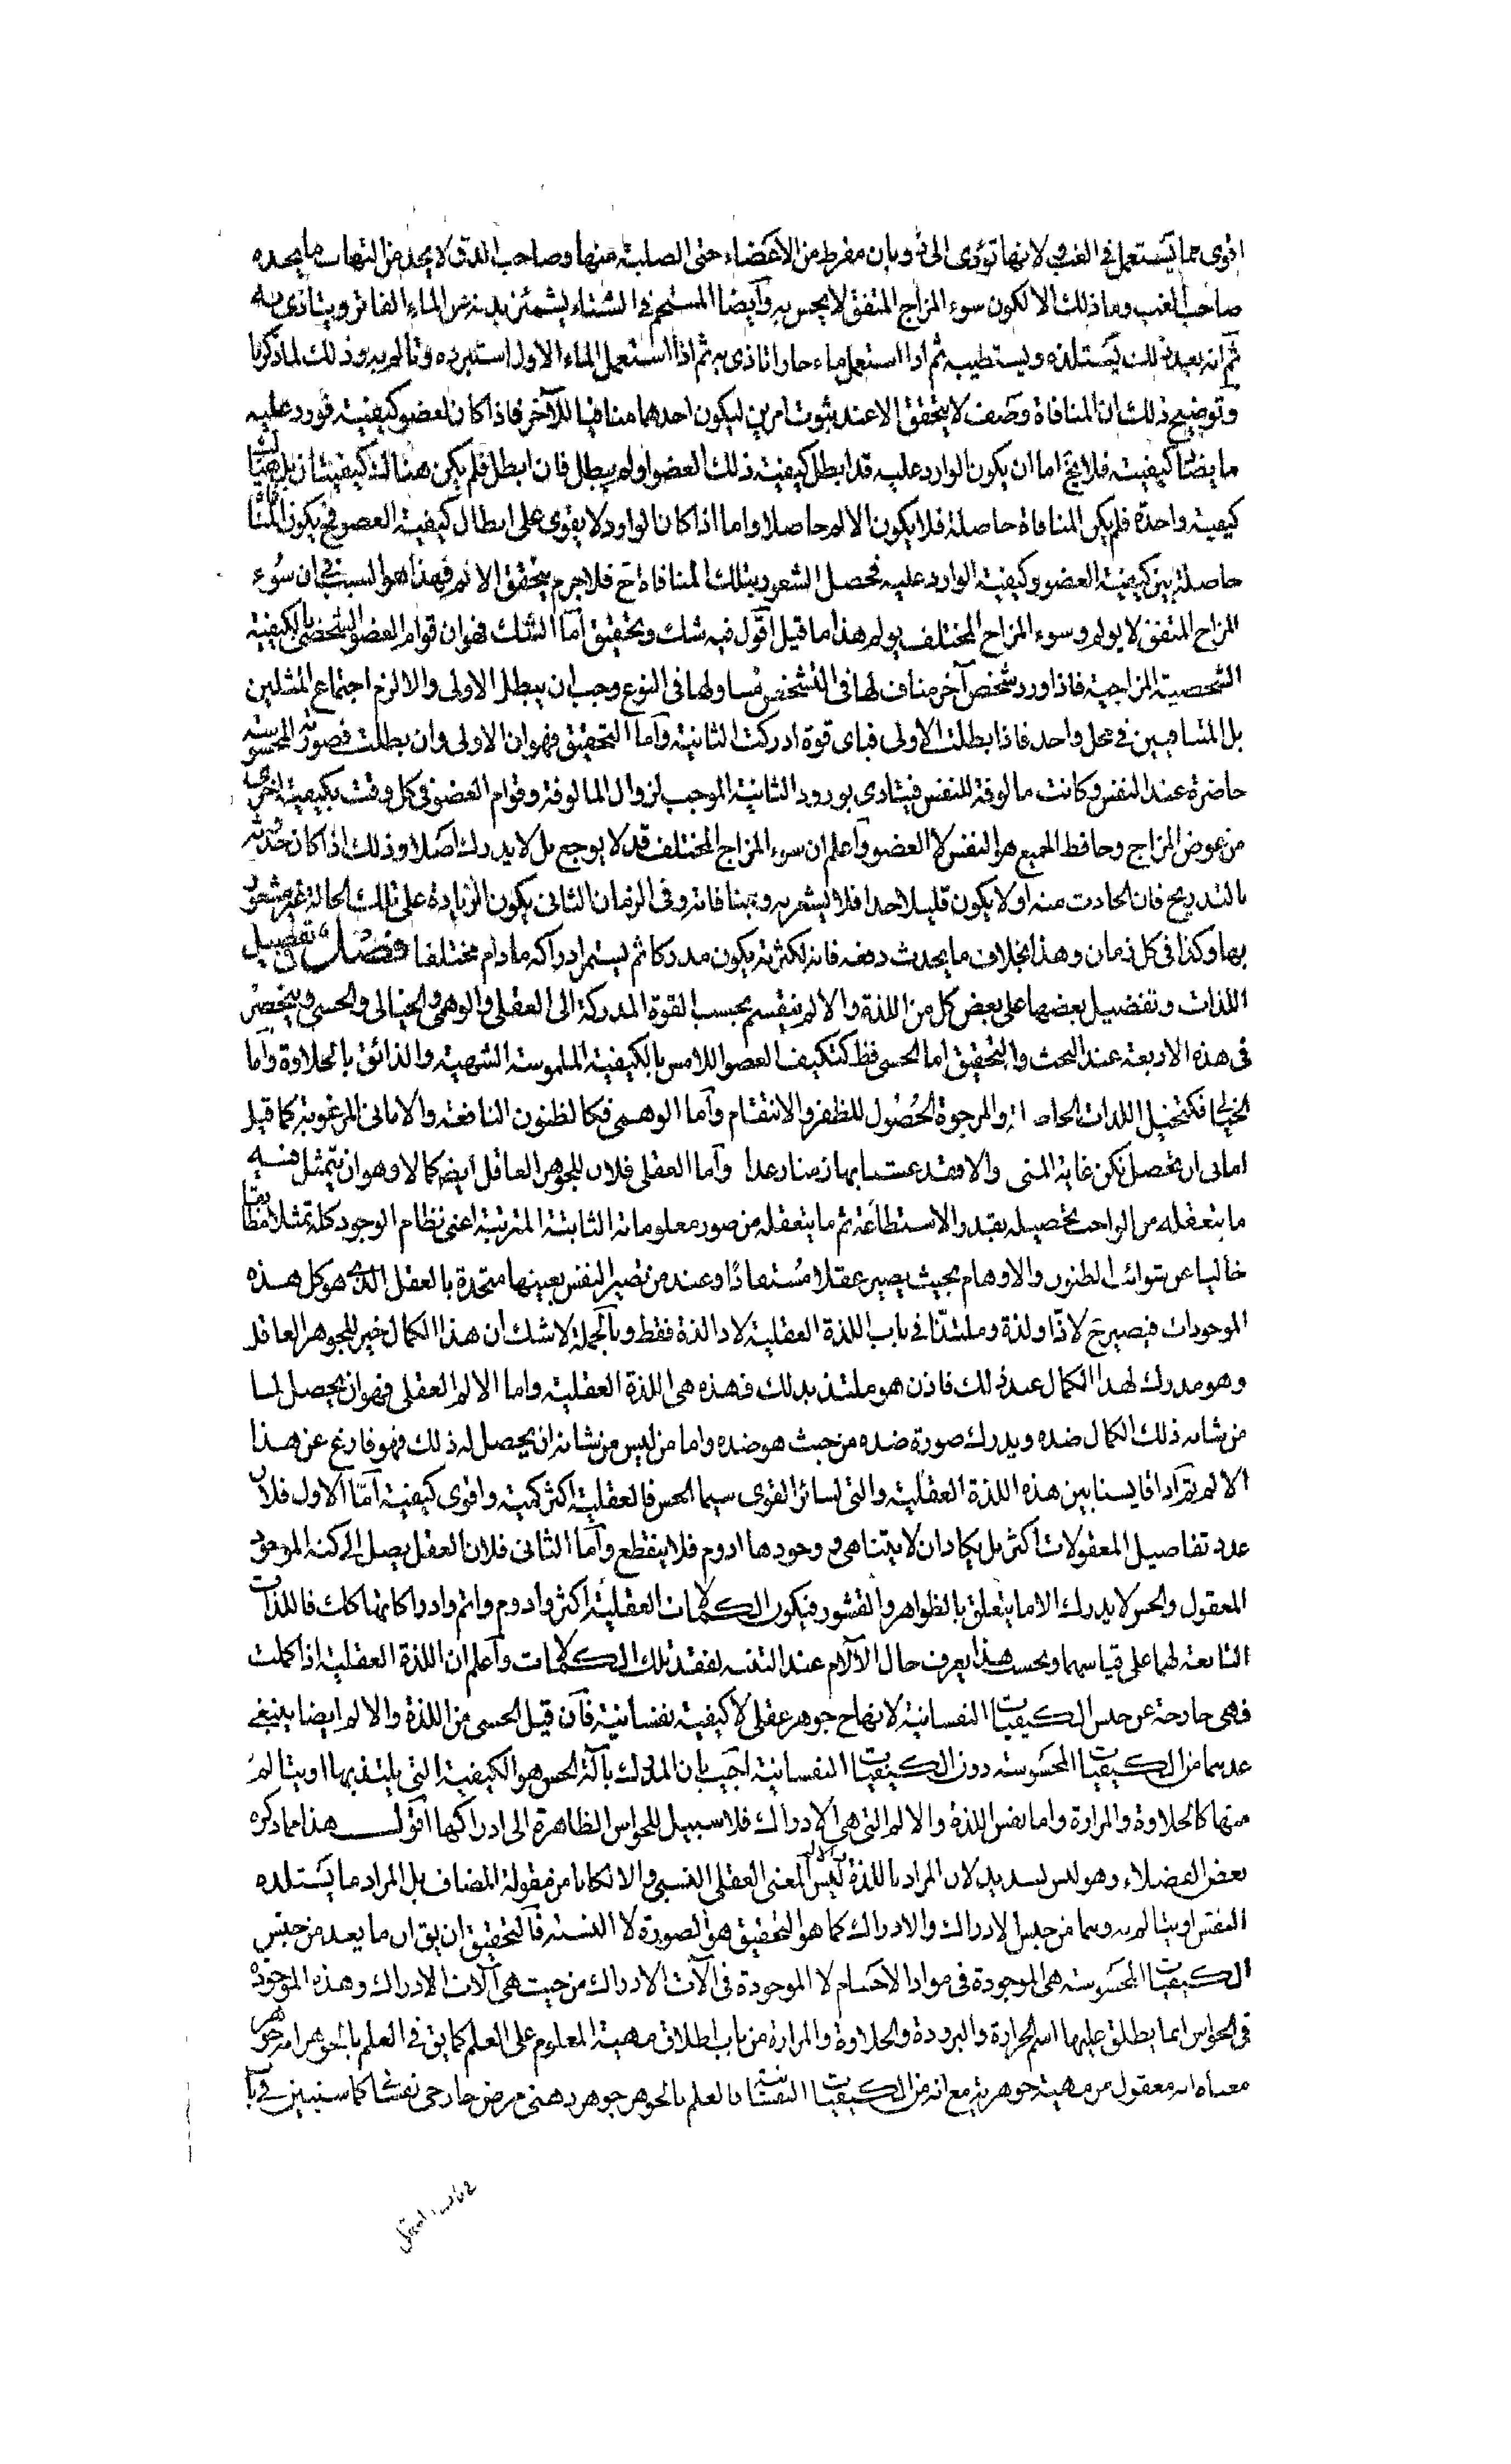 اقوى مما يستعمل في الغب لانها تؤدى الى ذوبان مفرط من الأعضاء حتى الصلبة منها وصاحب الدق لا يجد من التهاب ما يجده
صاحب الغب وما ذلك الا لكون سوء المزاج المتفق لا يحس به وأيضا المستحم في الشتاء يشمئز بدنه عن الماء الفاتر ويتأذى به
ثم انه بعد ذلك يستلذه ويستطيبه ثم اذا استعمل ماء حارا تاذى به ثم اذا استعمل الماء الاول استبرده وتالم به وذلك لما ذكرنا
وتوضيح ذلك ان المنافاة وصف لا يتحقق الا عند ثبوت امرين ليكون احدهما منافيا للآخر فاذا كان لعضو كيفية فورد عليه
ما يضاد كيفيته فلا يخ اما ان يكون الوارد عليه قد ابطل كيفية ذلك العضو او لم يبطل فان ابطل فلم يكن هنالك كيفيتان بل هناك
كيفية واحدة فلم يكن المنافاة حاصلة فلا يكون الالم حاصلا واما اذا كان الوارد لا يقوى على ابطال كيفية العضو فح يكون المنافاة
حاصلة بين كيفية العضو وكيفية الوارد عليه فحصل الشعور بتلك المنافاة ح فلا جرم يتحقق الالم فهذا هو السبب في ان سوء
المزاج المتفق لا يولم وسوء المزاج المختلف يولم هذا ما قيل اقول فيه شك وتحقيق اما الشك فهو ان قوام العضو الشخصى بالكيفية
الشخصية المزاجية فاذا ورد شخص آخر مناف لها في التشخص مساو لها في النوع وجب ان يبطل الاولى والا لزم اجتماع المثلين
بل المتشابهين في محل واحد فاذا بطلت الاولى فباى قوة ادركت الثانية وآما التحقيق فهو ان الاولى وان بطلت فصورته المحسوسة
حاضرة عند النفس وكانت مالوفة للنفس فيتاذى بورود الثانية الموجب لزوال المالوفة وقوام العضو في كل وقت بكيفية اخرى
من عوض المزاج وحافظ الجميع هو النفس لا العضو وآعلم ان سوء المزاج المختلف قد لا يوجع بل لا يدرك اصلا وذلك اذا كان حدوثه
بالتدريج فان الحادث منه اولا يكون قليلا جدا فلا يشعر به وبمنافاته وفي الزمان الثانى يكون الزيادة على تلك الحالة غير مشعور
بها وكذا في كل زمان وهذا بخلاف ما يحدث دفعه فانه لكثرته يكون مدركا ثم يستمر ادراكه ما دام مختلفا فصل في تفصيل
اللذات وتفضيل بعضها على بعض كل من اللذة والالم ينقسم بحسب القوة المدركة الى العقلى والوهمى والخيالى والحسى وينحصر
في هذه الاربعة عند البحث والتحقيق اما الحسى فظ كتكيف العضو اللامس بالكيفية الملموسة الشهية والذائق بالحلاوة وآما
الخيالى فكتخيل اللذات الحاصلة والمرجوة الحصول للظفر والانتقام وآما الوهمى فكالظنون النافعة والامانى المرغوبة كما قيل
امانى ان تحصل تكن غاية المنى والا فقد عشنا بها زمنا رغدا وآما العقلى فلان للجوهر العاقل ايض كمالا وهو ان يتمثل فيه
ما يتعقله من الواجب تحصيله بقدر الاستطاعة ثم ما يتعقله من صور معلوماته الثابتة المترتبة اعنى نظام الوجود كله تمثلا مطابقا
خاليا عن شوائب الظنون والاوهام بحيث يصير عقلا مستفادا وعند من تصير النفس بعينها متحدة بالعقل الذى هو كل هذه
الموجودات فيصير ح لاذا ولذة وملتذا في باب اللذة العقلية لا ذا لذة فقط وبالجملة لا شك ان هذا الكمال خير للجوهر العاقل
وهو مدرك لهذا الكمال عند ذلك فاذن هو ملتذ بذلك فهذه هى اللذة العقلية واما الالم العقلى فهو ان يحصل لما
من شانه ذلك الكمال ضده ويدرك صورة ضده من حيث هو ضده واما من ليس من شانه ان يحصل له ذلك فهو فارغ عن هذا
الالم ثم اذا قايسنا بين هذه اللذة العقلية والتى لسائر القوى سيما الحس فالعقلية اكثر كمية واقوى كيفية آمّا الاول فلان
عدد تفاصيل المعقولات اكثر بل يكاد ان لا يتناهى ووجودها ادوم فلا ينقطع وآما الثانى فلان العقل يصل الى كنه الموجود
المعقول والحس لا يدرك الا ما يتعلق بالظواهر والقشور فيكون الكمالات العقلية اكثر وادوم واتم وادراكاتها كك فاللذات
التابعة لهما على قياسهما وبحسب هذا يعرف حال الآلام عند التنبه لفقد تلك الكمالات وآعلم ان اللذة العقلية اذا كملت
فهى خارجة عن جنس الكيفيات النفسانية لانها ح جوهر عقلى لا كيفية نفسانية فآن قيل الحسى من اللذة والالم ايضا ينبغى
عدهما من الكيفيات المحسوسة دون الكيفيات النفسانية اجيب بان المدرك بآلة الحس هو الكيفية التى يلتذ بها او يتالم
منها كالحلاوة والمرارة واما نفس اللذة والالم التى هى الادراك فلا سبيل للحواس الظاهرة الى ادراكها آقول هذا مما ذكره
بعض الفضلاء وهو ليس بسديد لان المراد باللذة والالم ليس المعنى العقلى النسبى والا لكانا من مقولة المضاف بل المراد ما يستلذه
النفس او يتالم به وهما من جنس الادراك والادراك كما هو التحقيق هو الصورة لا النسبة فآلتحقيق ان يق ان ما يعد من جنس
الكيفيات المحسوسة هى الموجودة في مواد الاجسام لا الموجودة في آلات الادراك من حيث هى آلات الادراك وهذه الموجودة
في الحواس انما يطلق عليها اسم الحرارة والبرودة والحلاوة والمرارة من باب اطلاق مهية المعلوم على العلم كما يق في العلم بالجوهر انه جوهر
معناه انه معقول من مهية جوهرية مع انه من الكيفيات النفسانية فالعلم بالجوهر جوهر ذهنى عرض خارجى نفسانى كما سنبين في باب